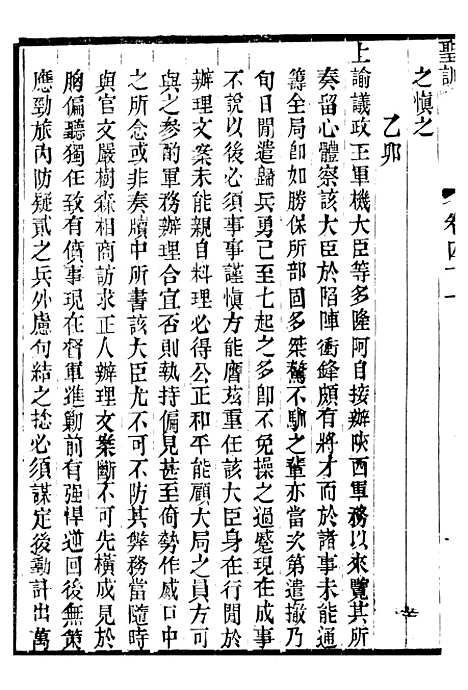 聖訓
卷四十一
之愼之
乙卯
上諭議政王軍機大臣等多隆阿自接辦陝西軍務以來覽其所
奏留心體察該大臣於陷陣衝鋒頗有將才而於諸事未能通
籌全局卽如勝保所部固多桀驁不馴之輩亦當次第遣撤乃
旬日閒遣歸兵勇已至七起之多卽不免操之過蹙現在成事
不說以後必須事事謹愼方能膺茲重任該大臣身在行閒於
辦理文案未能親自料理必得公正和平能顧大局之員方可
與之參酌軍務辦理合宜否則執持偏見甚至倚勢作威口中
之所念或非奏牘中所書該大臣尤不可不防其弊務當隨時
與官文嚴樹森相商訪求正人辦理文案斷不可先橫成見於
胸偏聽獨任致有僨事現在督軍進勦前有强悍逆回後無策
應勁旅內防疑貳之兵外慮句結之捻必須謀定後動計出萬